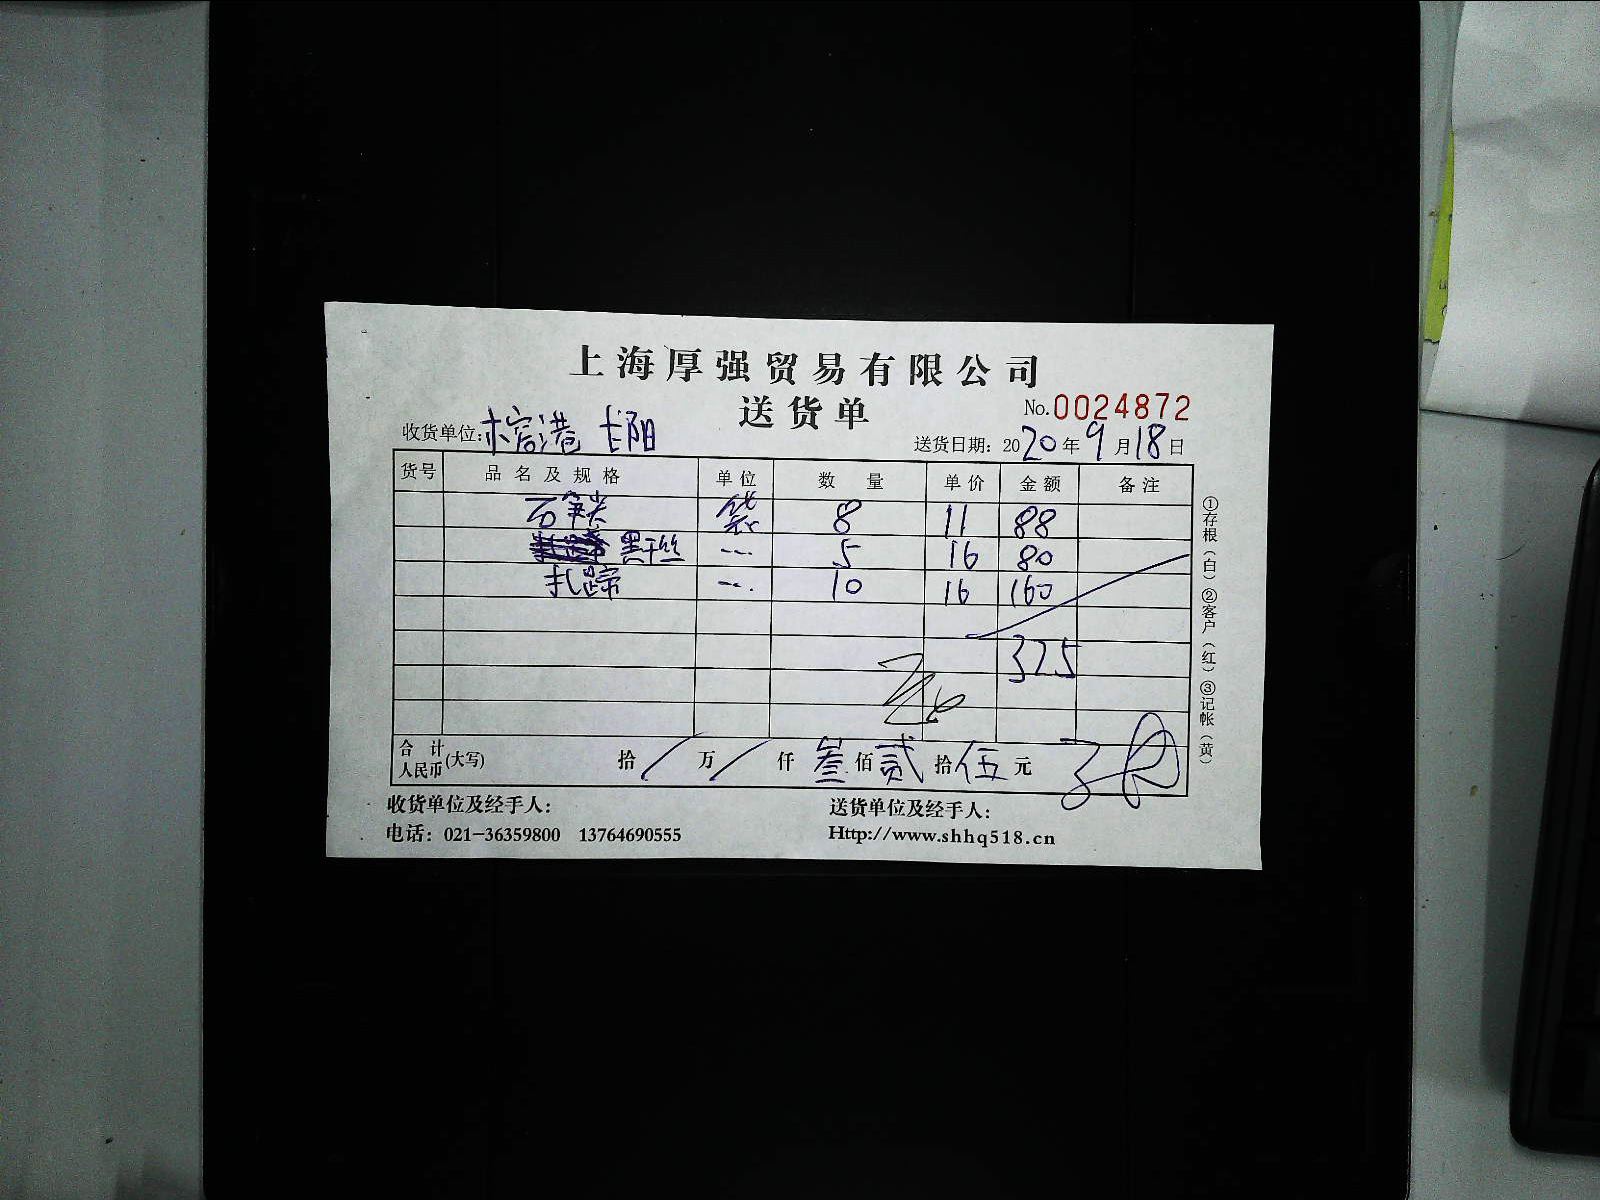 上海厚强贸易有限公司
送货单
No.0024872
收货单位:榕港 长阳
送货日期: 2020年9月18日
货号 品名及规格 单位 数量 单价 金额 备注
石笋尖 袋 8 11 88
黑干丝 --- 5 16 80
扎蹄 --- 10 16 160
325
合计人民币(大写) 拾/万/仟叁佰贰拾伍元
收货单位及经手人:
送货单位及经手人:
电话: 021-36359800 13764690555
Http://www.shhq518.cn
①存根(白)②客户(红)③记帐(黄)